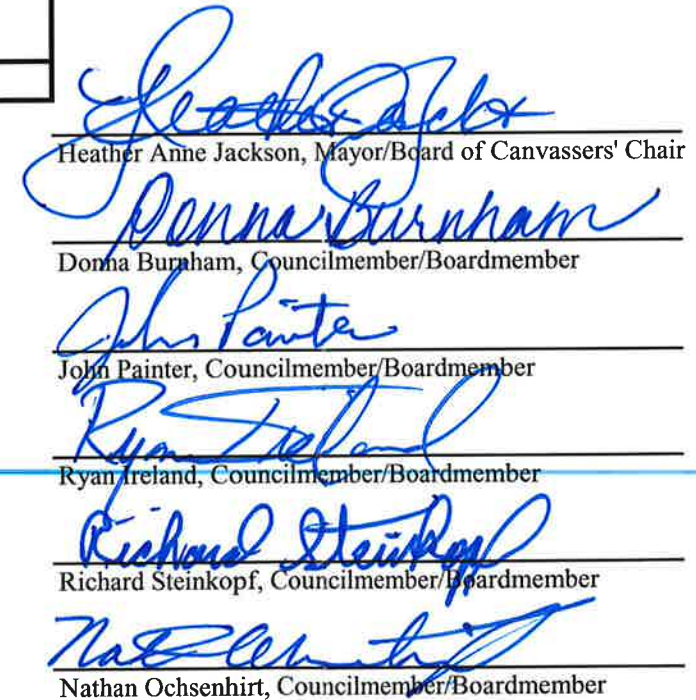 Heather Jackson
Heather Anne Jackson, Mayor/Board of Canvassers' Chair
Donna Burnham
Donna Burnham, Councilmember/Boardmember
John Painter
John Painter, Councilmember/Boardmember
Ryan Ireland
Ryan Ireland, Councilmember/Boardmember
Richard Steinkopf
Richard Steinkopf, Councilmember/Boardmember
Nathan Ochsenhirt, Councilmember/Boardmember